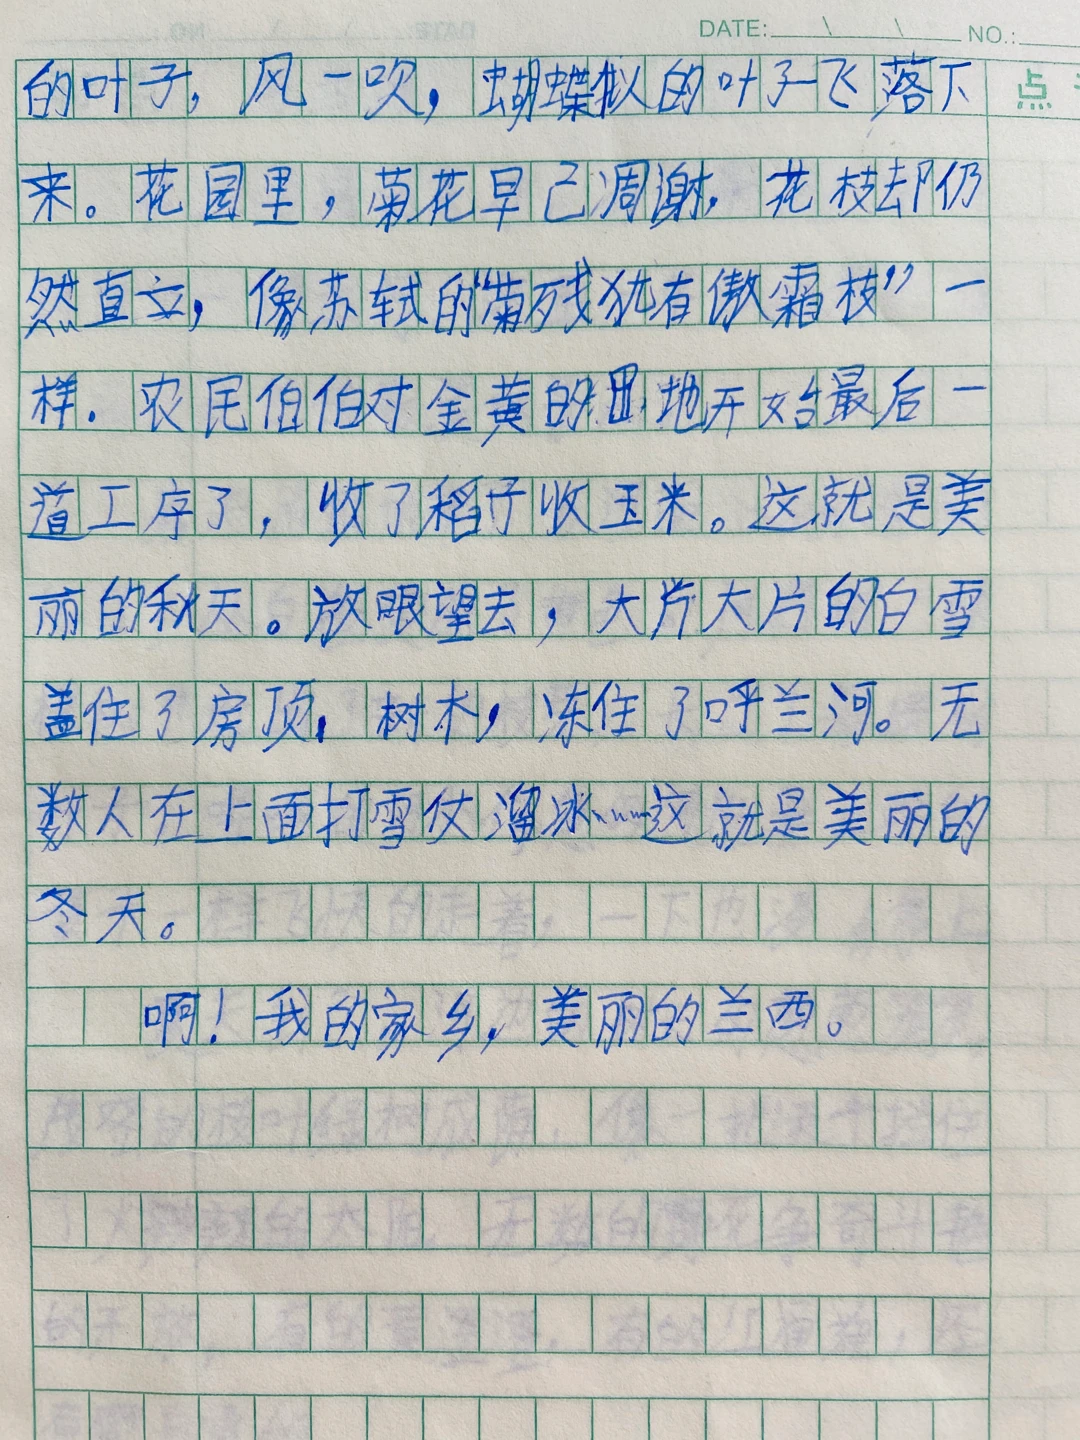 DATE: \ \ NO.:
的叶子，风一吹，蝴蝶拟的叶子飞落下
点
来。花园里，菊花早已凋谢，花枝却仍
然直立，像苏轼的“菊残犹有傲霜枝”一
样．农民伯伯对金黄的田地开始最后一
道工序了，收了稻子收玉米。这就是美
丽的秋天。放眼望去，大片大片的白雪
盖住了房顶，树木，冻住了呼兰河。无
数人在上面打雪仗溜冰……这就是美丽的
冬天。
啊！我的家乡，美丽的兰西。